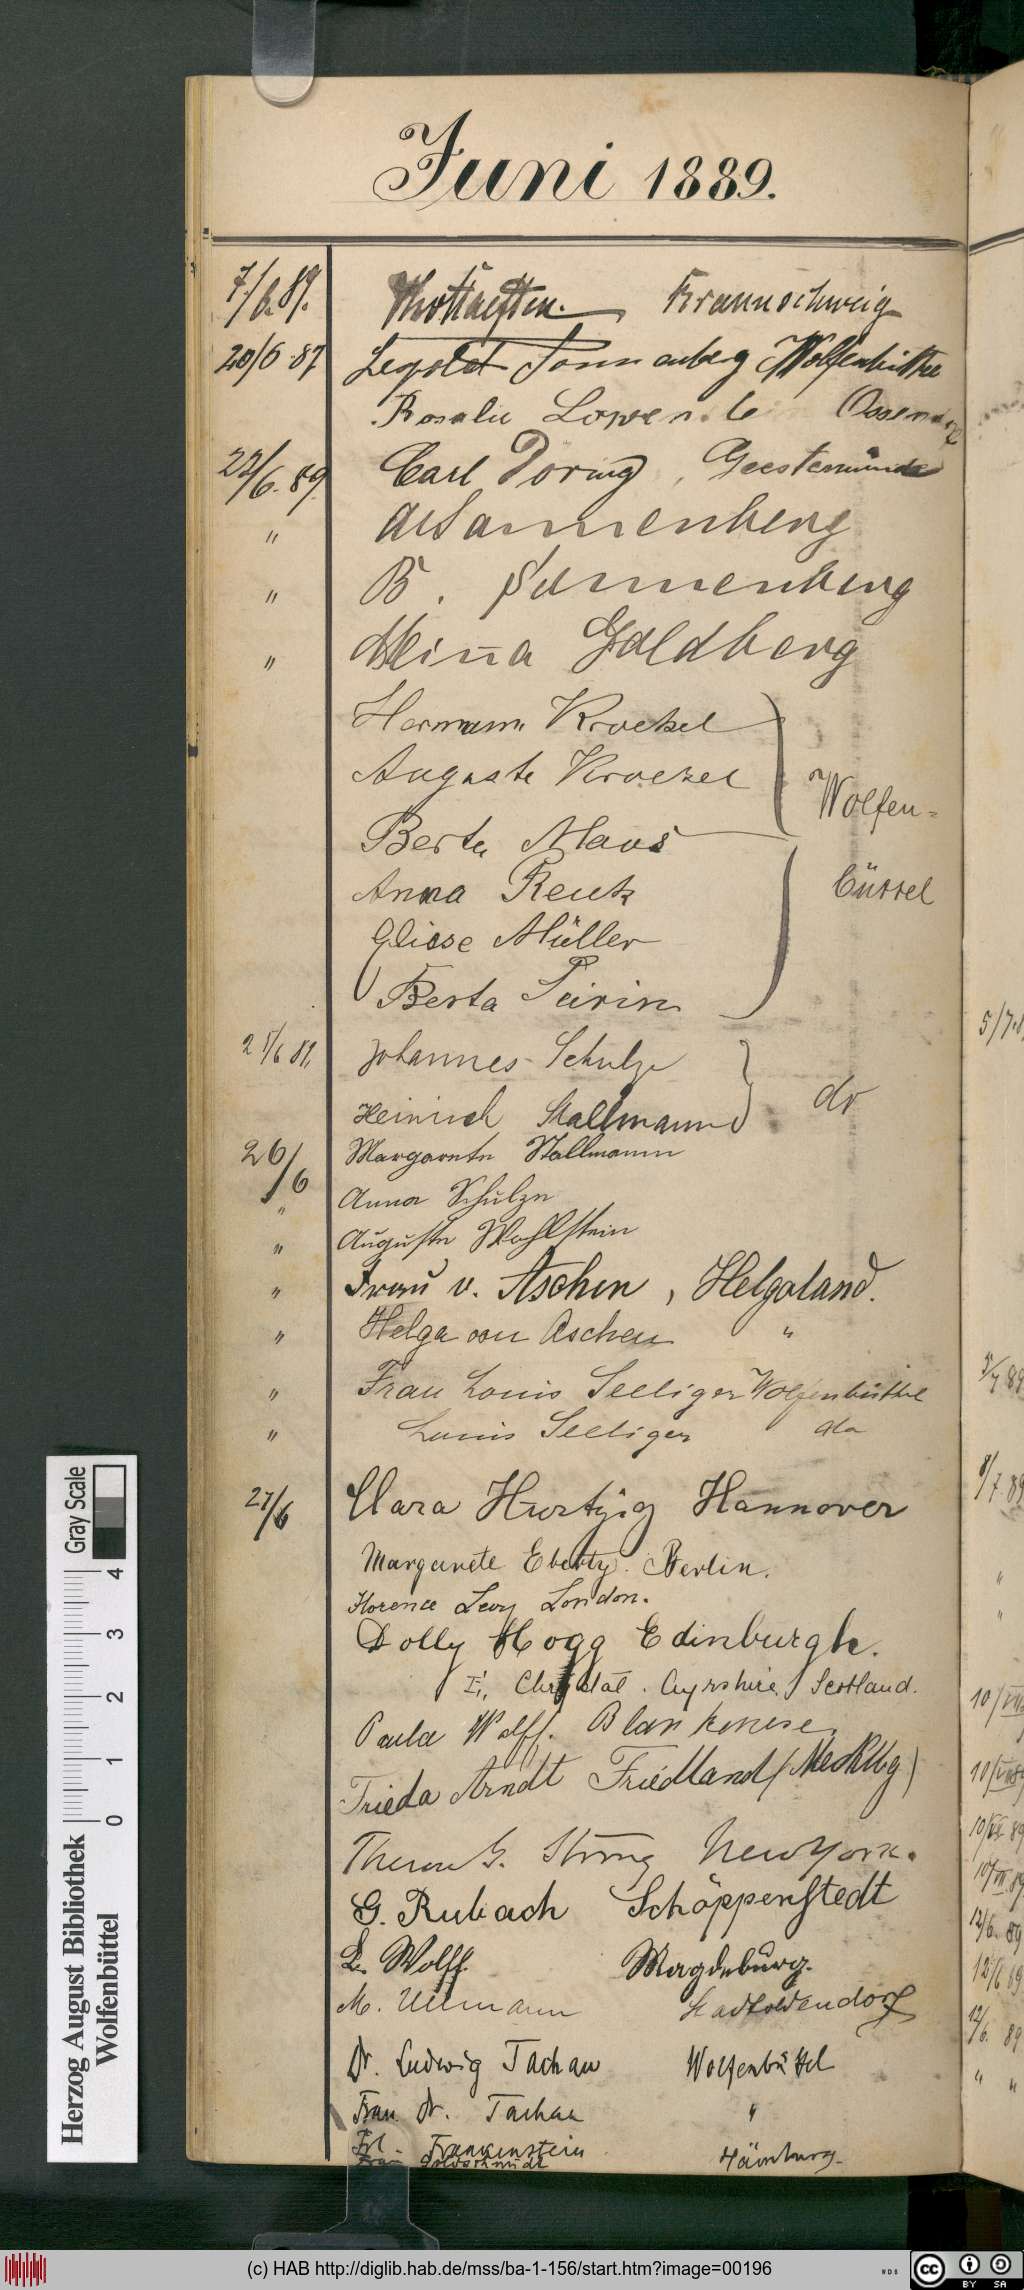 Juni 1889.
7/6. 89. Braunschweig
20/6 87 Leopold Sonnenberg Wolfenbüttel
Rosalie
22/6. 89. Carl Döring, Geestemünde
" Sannenberg
" B. Sannenberg
" Minna Goldberg
Hermann Kroekel
Auguste Kroekel
Wolfen=
Berta Maas
Anna Reuk
büttel
Eliese Müller
Berta
25/6 89. Johannes Schulze
do
Heinrich Stallmann
26/6 Margarete Stallmann
" Anna Schulze
" Auguste Wohlstein
" Frau v. Aschen, Helgoland.
" Helga von Aschen "
" Frau Louis Seeliger Wolfenbüttel
" Louis Seeliger do
27/6 Clara Hurtzig Hannover
Margarete Eberty. Berlin.
Florence Levy London.
Dolly Hogg Edinburgh.
Chrystal. Ayrshire. Scotland.
Paula Wolff. Blankenese.
Frieda Arndt Friedland (Mecklbg)
G. Strong New York.
G. Rubach Schöppenstedt
L. Wolff. Magdeburg.
M. Ullmann Stadtoldendorf
Dr. Ludwig Tachau Wolfenbüttel
Frau Dr. Tachau "
Frl. Frankenstein
Frau Goldschmidt Hamburg.
5/7.8
3/7 89
8/7 89
"
"
10/VII
10/VII 89
10/VII 89
10/VII 89
12/6. 89
12/6 89
12/6. 89
" "
Gray Scale
0 1 2 3 4
Herzog August Bibliothek
Wolfenbüttel
(c) HAB http://diglib.hab.de/mss/ba-1-156/start.htm?image=00196
cc BY SA